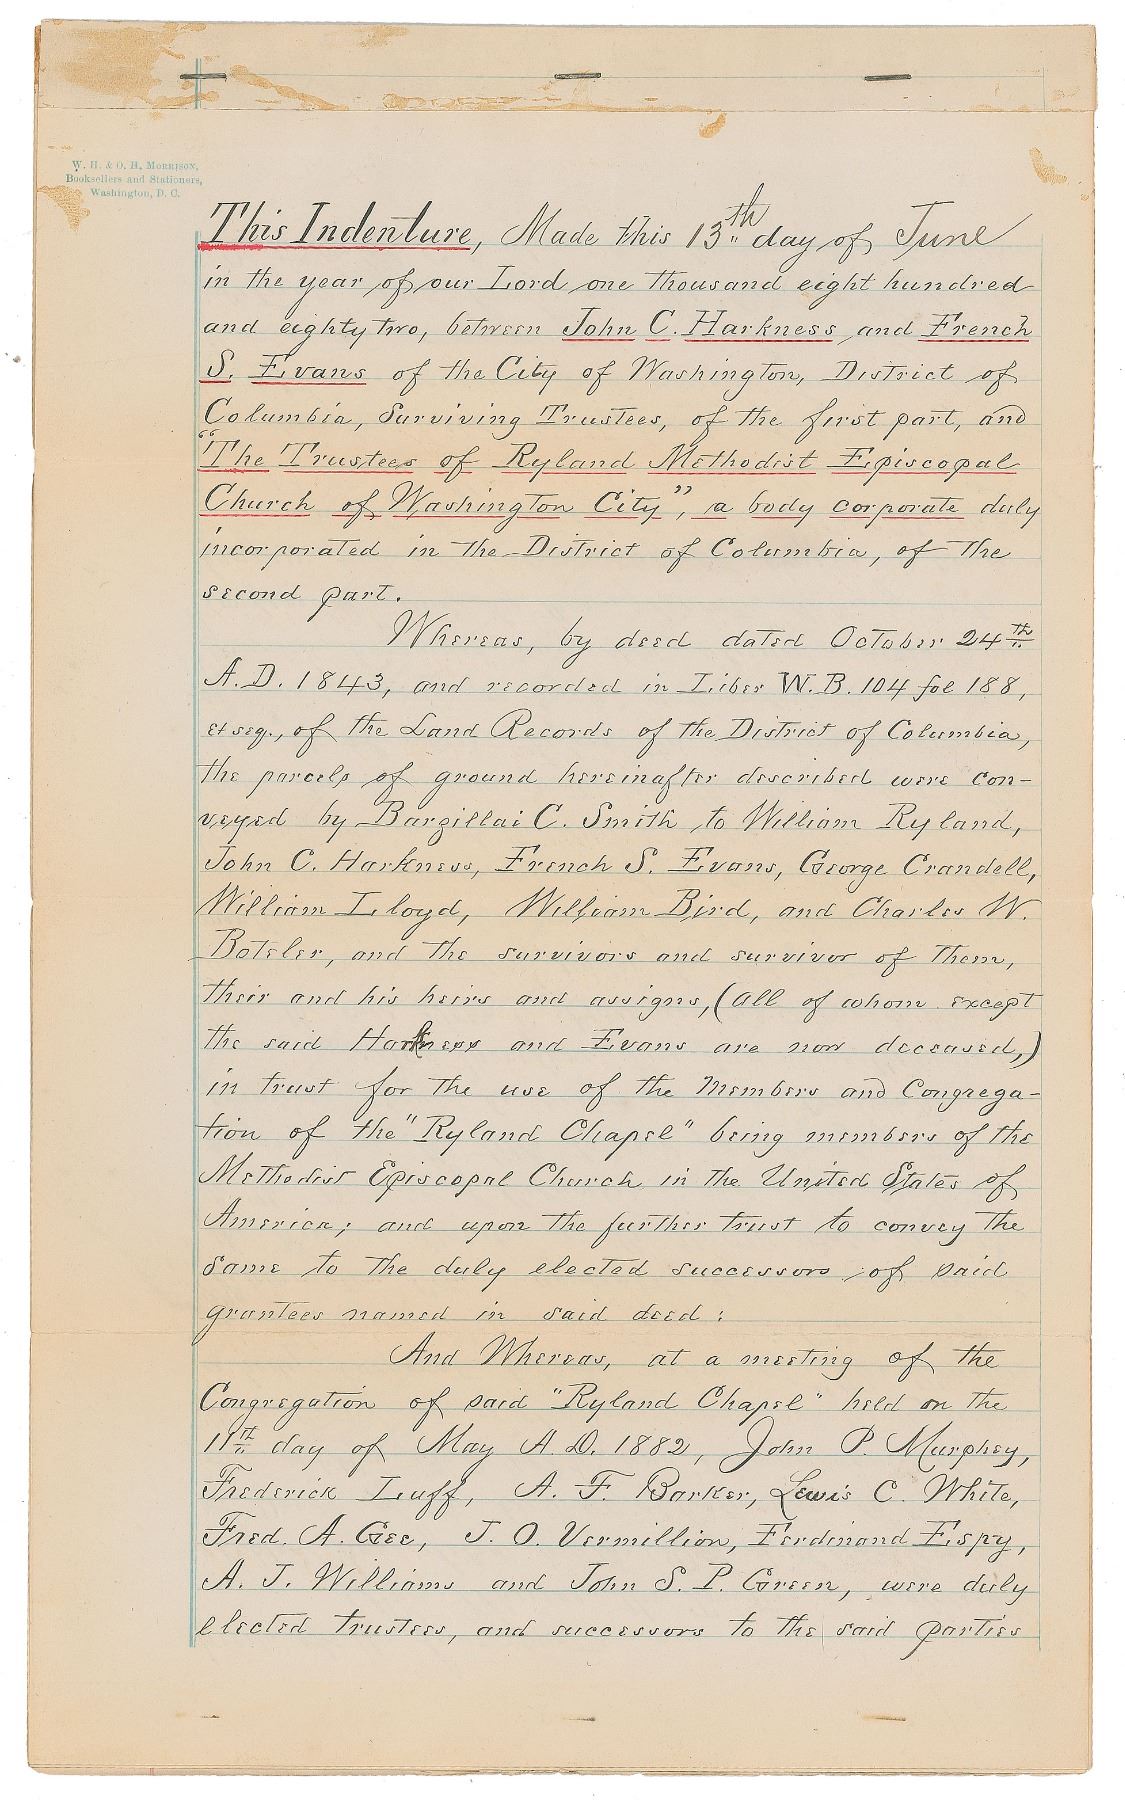 W. H. & O. H. Morrison,
Booksellers and Stationers,
Washington, D. C.
This Indenture, Made this 13th day of June
in the year of our Lord one thousand eight hundred
and eighty two, between John C. Harkness and French
S. Evans of the City of Washington, District of
Columbia, Surviving Trustees, of the first part, and
"The Trustees of Ryland Methodist Episcopal
Church of Washington City", a body corporate duly
incorporated in the District of Columbia, of the
second part.
Whereas, by deed dated October 24th
A.D. 1843, and recorded in Liber W.B. 104 fol 188,
et seq., of the Land Records of the District of Columbia,
the parcels of ground hereinafter described were con-
veyed by Barzillai C. Smith to William Ryland,
John C. Harkness, French S. Evans, George Crandell,
William Lloyd, William Bird, and Charles W.
Boteler, and the survivors and survivor of them,
their and his heirs and assigns, (all of whom except
the said Harkness and Evans are now deceased,)
in trust for the use of the Members and Congrega-
tion of the "Ryland Chapel" being members of the
Methodist Episcopal Church in the United States of
America; and upon the further trust to convey the
same to the duly elected successors of said
grantees named in said deed:
And Whereas, at a meeting of the
Congregation of said "Ryland Chapel" held on the
11th day of May A.D. 1882, John P. Murphey,
Frederick Luff, A. F. Barker, Lewis C. White,
Fred. A. Gee, J. O. Vermillion, Ferdinand Espy,
A. J. Williams and John S. P. Green, were duly
elected trustees, and successors to the said parties